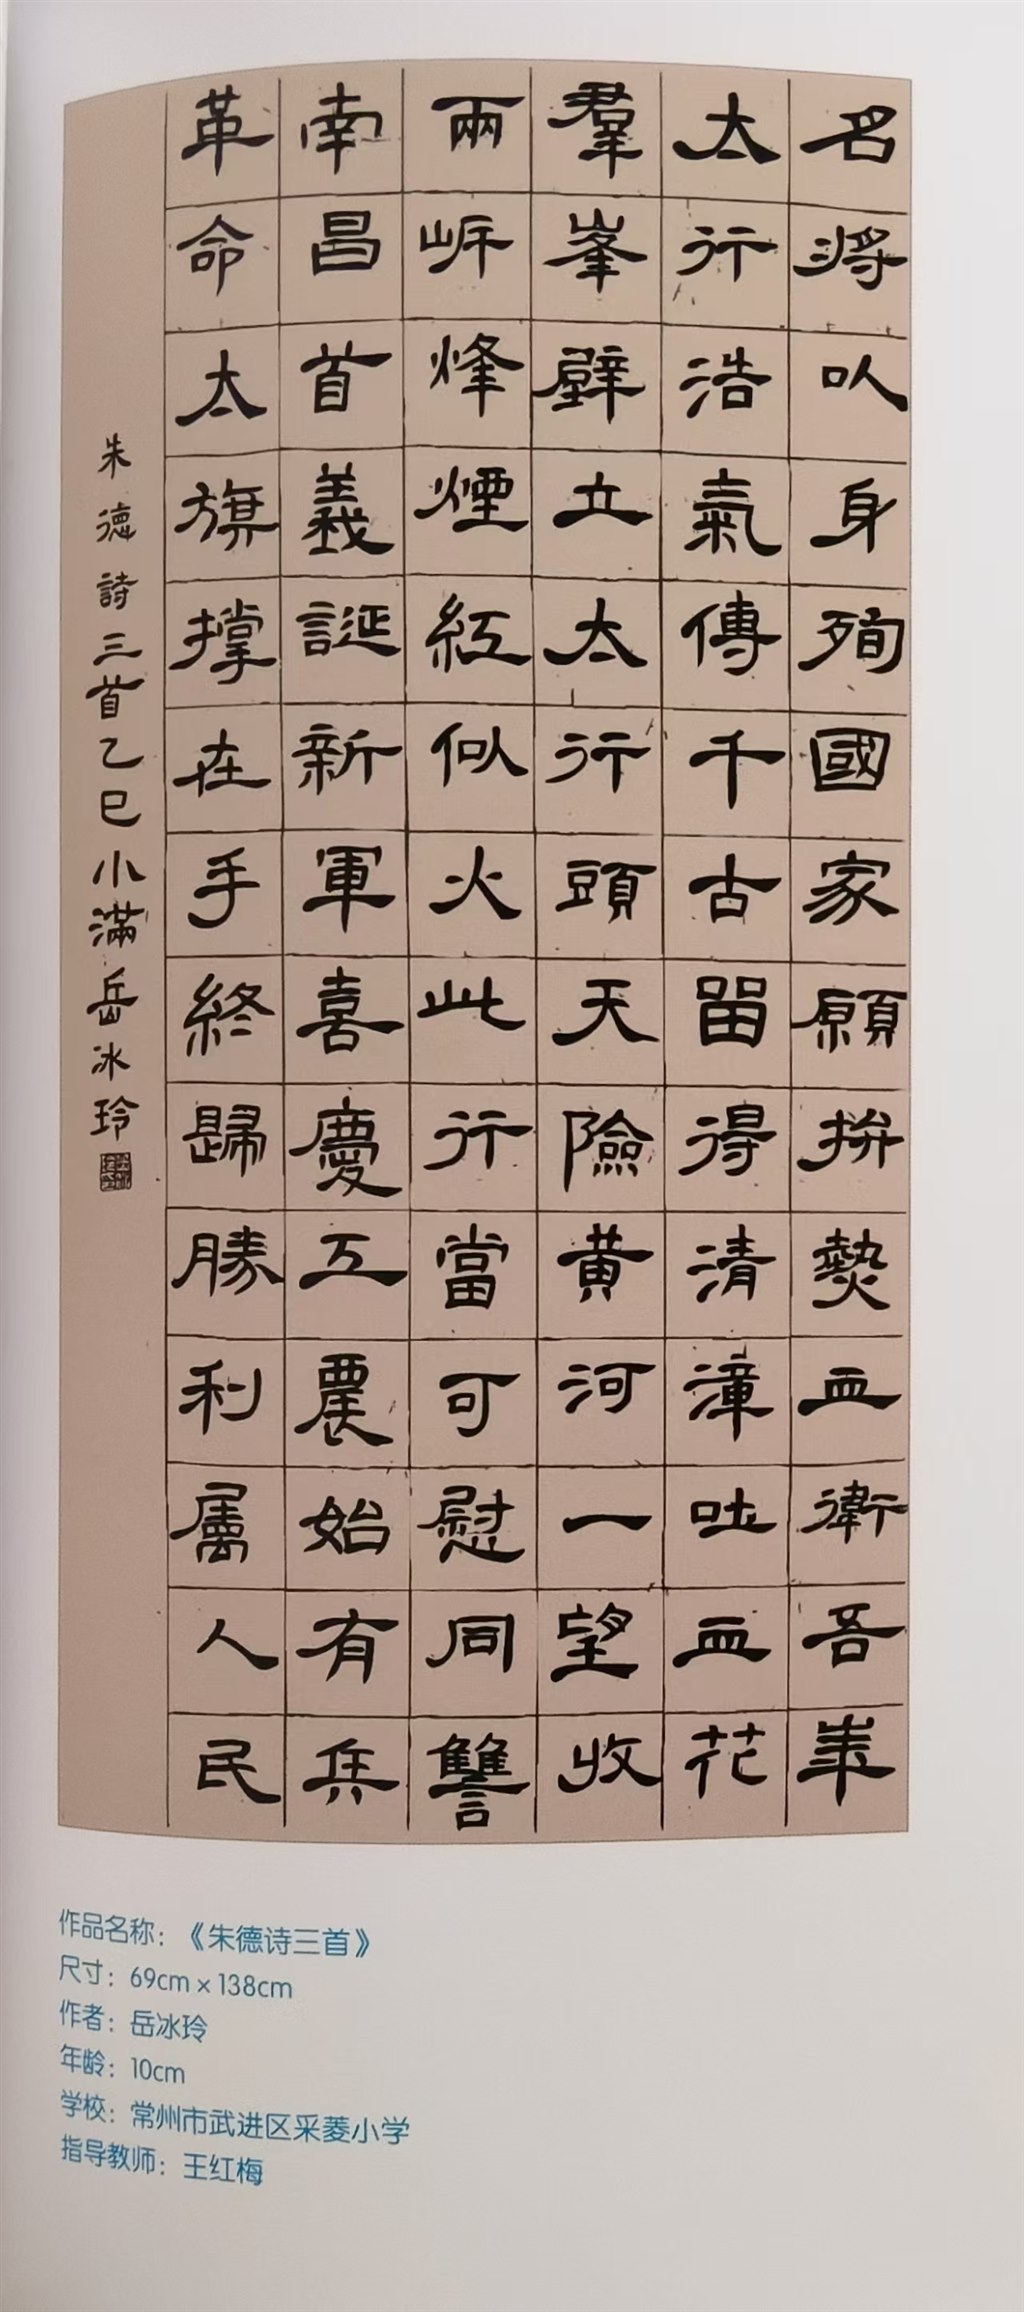 名將以身殉國家願拚熱血衛吾華
太行浩氣傳千古留得清漳吐血花
羣峯壁立太行頭天險黃河一望收
兩岸烽煙紅似火此行當可慰同讐
南昌首義誕新軍喜慶工農始有兵
革命大旗撑在手終歸勝利屬人民
朱德詩三首乙巳小滿岳冰玲
作品名称：《朱德诗三首》
尺寸：69cm×138cm
作者：岳冰玲
年龄：10cm
学校：常州市武进区采菱小学
指导教师：王红梅